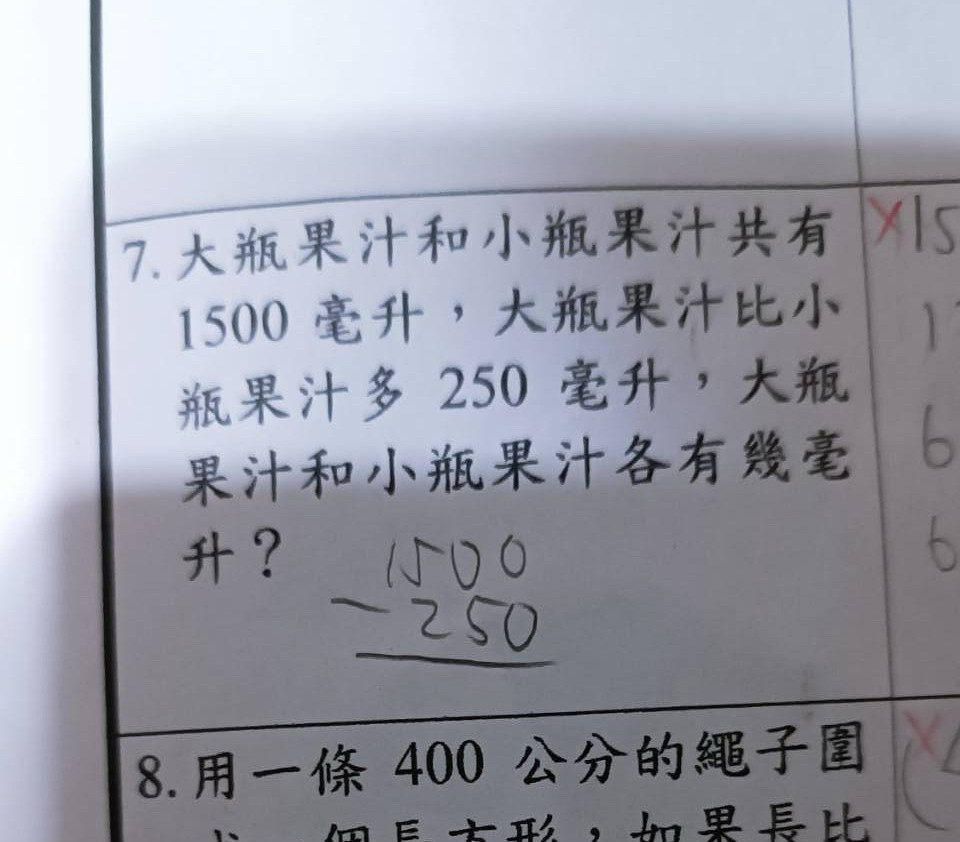 7. 大瓶果汁和小瓶果汁共有
1500 毫升，大瓶果汁比小
瓶果汁多 250 毫升，大瓶
果汁和小瓶果汁各有幾毫
升？
1500
- 250
×15
1
6
6
8. 用一條 400 公分的繩子圍
個長方形，如果長比
×